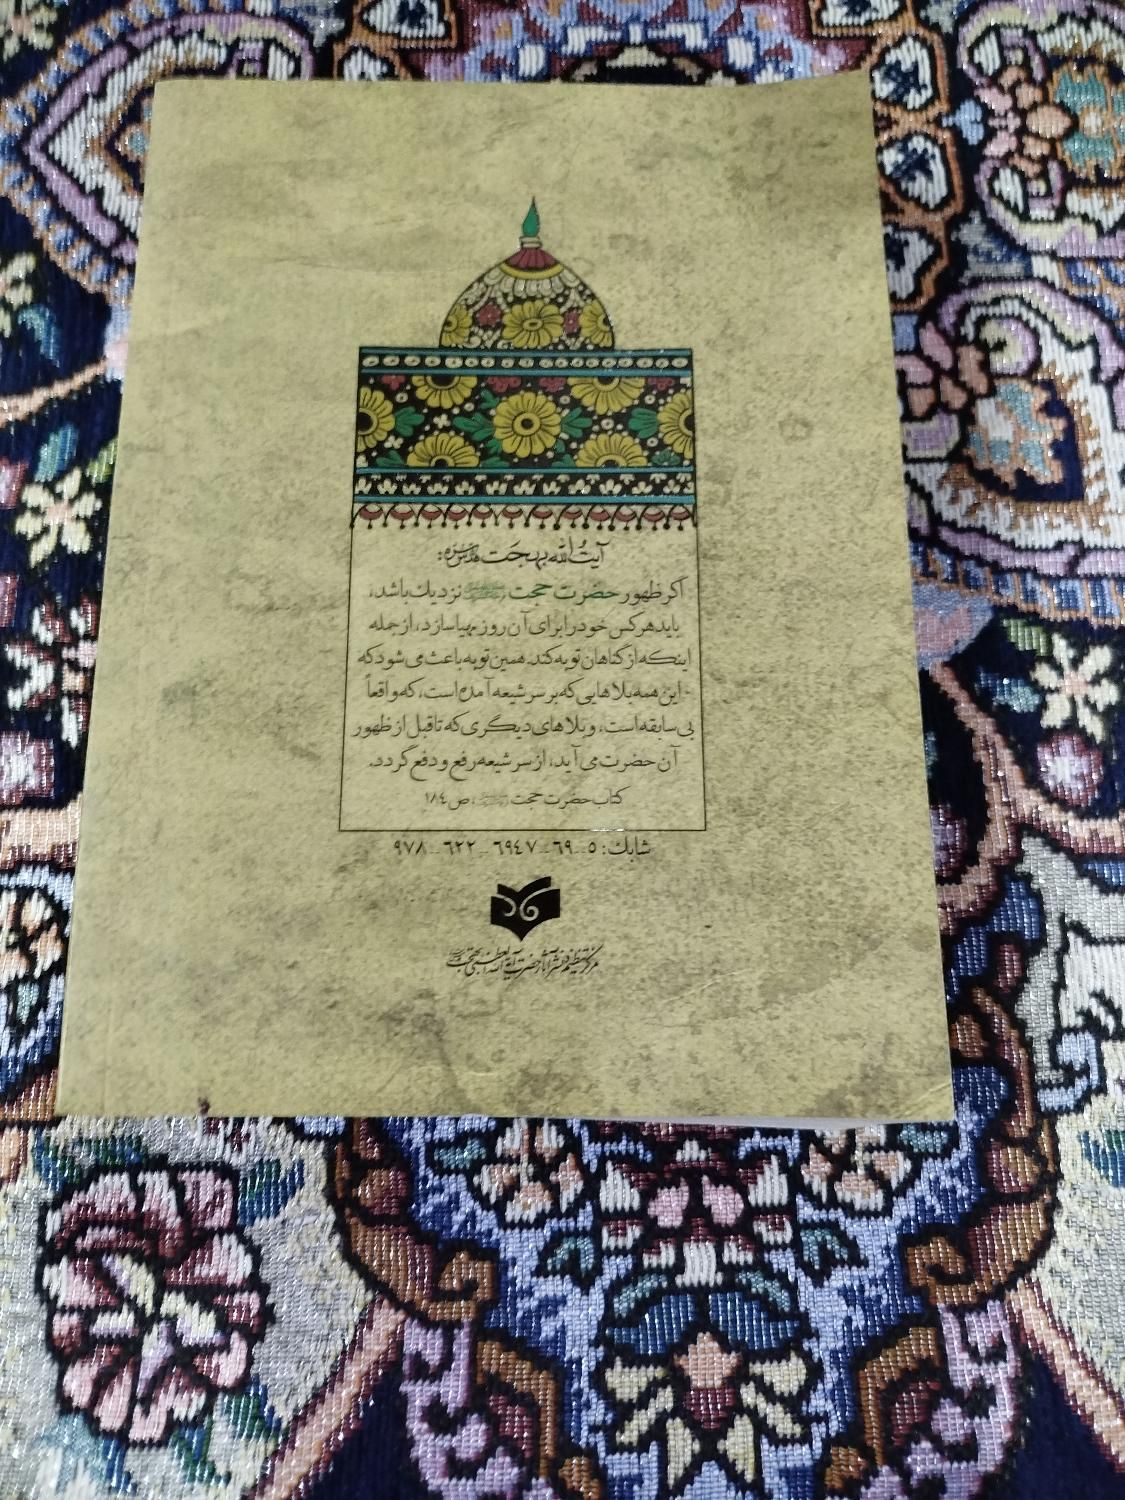 آیتُ‌الله بهجت قدس‌سره:
اگر ظهور حضرت حجت نزدیک باشد،
باید هرکس خود را برای آن روز مهیا سازد، از جمله
اینکه از گناهان توبه کند. همین توبه باعث می‌شود که
این همه بلاهایی که بر سر شیعه آمده است، که واقعاً
بی‌سابقه است، و بلاهای دیگری که تا قبل از ظهور
آن حضرت می‌آید، از سر شیعه رفع و دفع گردد.
کتاب حضرت حجت، ص ١٨٤
شابك: ٥ـ٦٩ـ٦٩٤٧ـ٦٢٢ـ٩٧٨
مرکز تنظیم و نشر آثار حضرت آیة الله العظمی بهجت